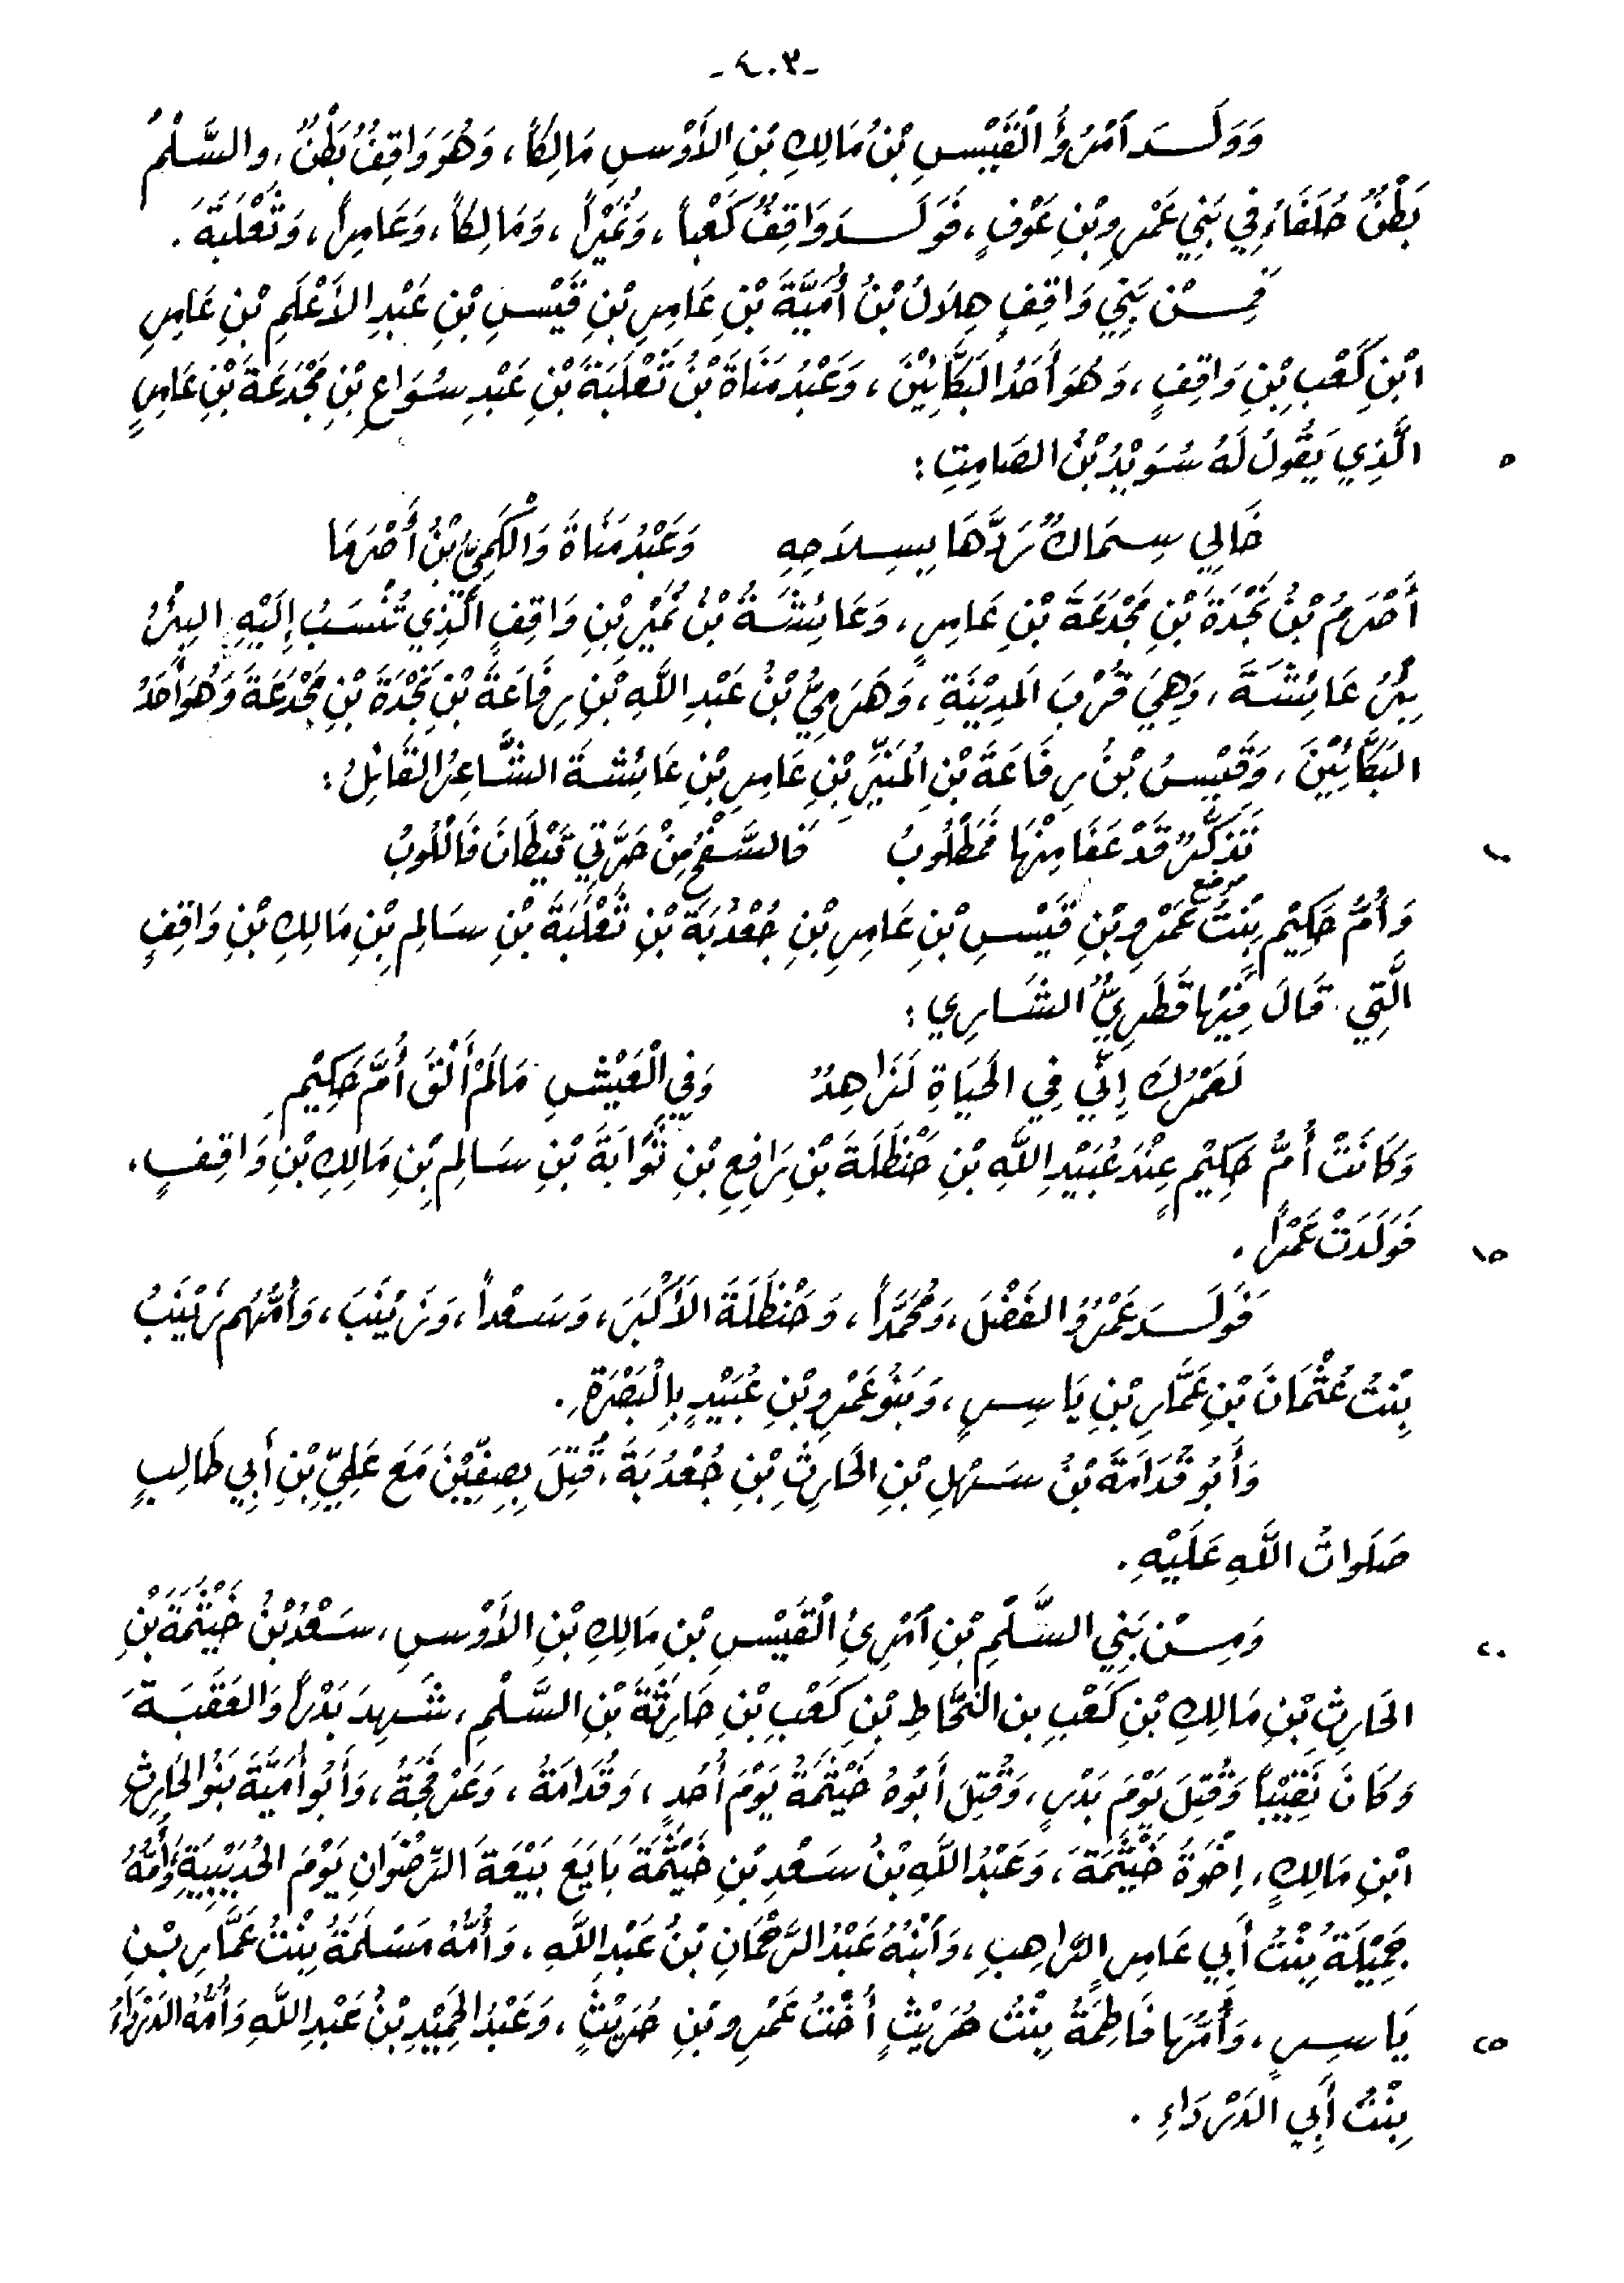 -٤٠٣-
وَوَلَدَ ٱمْرُؤُ ٱلْقَيْسِ بْنُ مَالِكِ بْنِ الأَوْسِ مَالِكاً، وَهُوَ وَاقِفُ بَطْنٌ، والسَّلْمُ
بَطْنٌ حُلَفَاءُ فِي بَنِي عَمْرِو بْنِ عَوْفٍ، فَوَلَدَ وَاقِفٌ كَعْباً، وَنُمَيْراً، وَمَالِكاً، وَعَامِراً، وَثَعْلَبَةَ.
فَمِنْ بَنِي وَاقِفٍ هِلاَلُ بْنُ أُمَيَّةَ بْنِ عَامِرِ بْنِ قَيْسِ بْنِ عَبْدِ الأَعْلَمِ بْنِ عَامِرِ
ابْنِ كَعْبِ بْنِ وَاقِفٍ، وَهُوَ أَحَدُ البَكَّائِيْنَ، وَعَبْدُ مَنَاةَ بْنُ ثَعْلَبَةَ بْنِ عَبْدِ سُوَاعِ بْنِ مَجْدَعَةَ بْنِ عَامِرٍ
الَّذِي يَقُولُ لَهُ سُوَيْدُ بْنُ الصَامِتِ: ٥
خَالِي سِمَاكٌ رَدَّهَا بِسِلاَحِهِ وَعَبْدُ مَنَاةَ وَالْكَمِيُّ بْنُ أَصْرَمَا
أَصْرَمُ بْنُ نَجْدَةَ بْنِ مَجْدَعَةَ بْنِ عَامِرٍ، وَعَائِشَةُ بْنُ نُمَيْرِ بْنِ وَاقِفٍ الَّذِي تُنْسَبُ إِلَيْهِ البِئْرُ
بِئْرُ عَائِشَةَ، وَهِيَ قُرْبَ المَدِيْنَةِ، وَهَرَمِيُّ بْنُ عَبْدِ اللَّهِ بْنِ رِفَاعَةَ بْنِ نَجْدَةَ بْنِ مَجْدَعَةَ وَهُوَ أَحَدُ
البَكَّائِيْنَ، وَقَيْسُ بْنُ رِفَاعَةَ بْنِ المُنَيِّرِ بْنِ عَامِرِ بْنِ عَائِشَةَ الشَّاعِرُ القَائِلُ:
تَذَكَّرٌ قَدْ عَفَا مِنْهَا فَمَطْلُوبُ فَالسَّفْحُ مِنْ حَرَّتِي تَيْطَانَ فَاللُّوبُ ١٠
موضع
وَأُمُّ حَكِيْمٍ بِنْتُ عَمْرِو بْنِ قَيْسِ بْنِ عَامِرِ بْنِ جُعْدُبَةَ بْنِ ثَعْلَبَةَ بْنِ سَالِمِ بْنِ مَالِكِ بْنِ وَاقِفٍ
الَّتِي قَالَ فِيْهَا قَطَرِيٌّ الشَارِي:
لَعَمْرُكَ إِنِّي فِي الحَيَاةِ لَزَاهِدٌ وَفِي الْعَيْشِ مَالَمْ أَلْقَ أُمَّ حَكِيْمِ
وَكَانَتْ أُمُّ حَكِيْمٍ عِنْدَ عُبَيْدِ اللَّهِ بْنِ حَنْظَلَةَ بْنِ رَافِعِ بْنِ ثَوَابَةَ بْنِ سَالِمِ بْنِ مَالِكِ بْنِ وَاقِفٍ،
فَوَلَدَتْ عَمْراً. ١٥
فَوَلَدَ عَمْرٌو الفَضْلَ، وَمُحَمَّداً، وَحَنْظَلَةَ الأَكْبَرَ، وَسَعْداً، وَزَيْنَبَ، وَأُمُّهُم زَيْنَبُ
بِنْتُ عُثْمَانَ بْنِ عَمَّارِ بْنِ يَاسِرٍ، وَبَنُو عَمْرِو بْنِ عُبَيْدٍ بِالْبَصْرَةِ.
وَأَبُو قُدَامَةَ بْنُ سَهْلِ بْنِ الحَارِثِ بْنِ جُعْدُبَةَ، قُتِلَ بِصِفِّيْنَ مَعَ عَلِيِّ بْنِ أَبِي طَالِبٍ
صَلَوَاتُ اللَّهِ عَلَيْهِ.
وَمِنْ بَنِي السَّلْمِ بْنِ ٱمْرِئِ الْقَيْسِ بْنِ مَالِكِ بْنِ الأَوْسِ، سَعْدُ بْنُ خَيْثَمَةَ بْنِ ٢٠
الحَارِثِ بْنِ مَالِكِ بْنِ كَعْبِ بن النَحَّاطِ بْنِ كَعْبِ بْنِ حَارِثَةَ بْنِ السَّلْمِ، شَهِدَ بَدْراً وَالعَقَبَةَ
وَكَانَ نَقِيْباً وَقُتِلَ يَوْمَ بَدْرٍ، وَقُتِلَ أَبُوهُ خَيْثَمَةُ يَوْمَ أُحُدٍ، وَقُدَامَةُ، وَعَرْفَجَةُ، وَأَبُو أُمَيَّةَ بَنُو الحَارِثِ
ابْنِ مَالِكٍ، إِخْوَةُ خَيْثَمَةَ، وَعَبْدُ اللَّهِ بْنُ سَعْدِ بْنِ خَيْثَمَةَ بَايَعَ بَيْعَةَ الرِّضْوَانِ يَوْمَ الحُدَيْبِيَةِ وَأُمُّهُ
جَمِيْلَةُ بِنْتُ أَبِي عَامِرٍ الرَاهِبِ، وَٱبْنُهُ عَبْدُ الرَّحْمَانِ بْنُ عَبْدِ اللَّهِ، وَأُمُّهُ مَسْلَمَةُ بِنْتُ عَمَّارِ بْنِ
يَاسِرٍ، وَأُمُّهَا فَاطِمَةُ بِنْتُ حُرَيْثٍ أُخْتُ عَمْرِو بْنِ حُرَيْثٍ، وَعَبْدُ الحَمِيْدِ بْنُ عَبْدِ اللَّهِ وَأُمُّهُ الدَرْدَاءُ ٢٥
بِنْتُ أَبِي الدَرْدَاءِ.